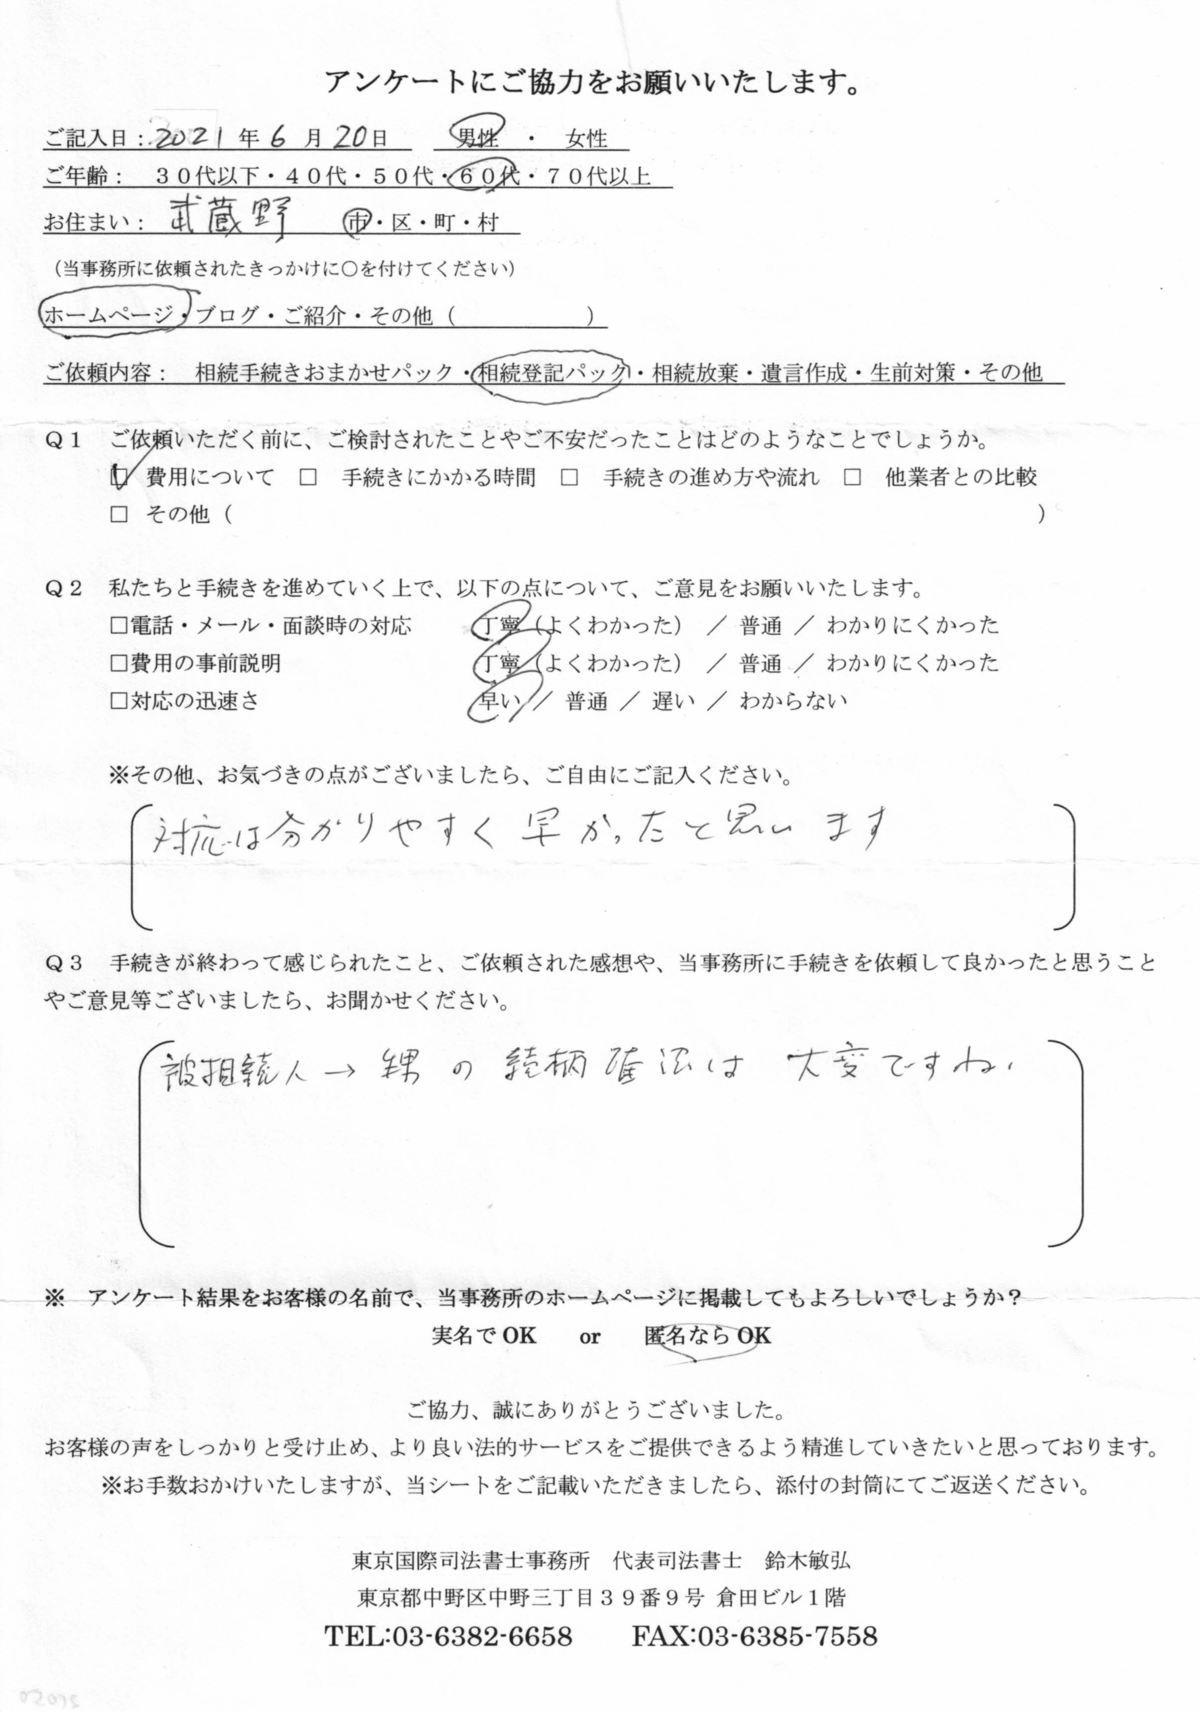 アンケートにご協力をお願いいたします。
ご記入日：2021年6月20日　男性・女性
ご年齢：　３０代以下・４０代・５０代・６０代・７０代以上
お住まい：　武蔵野　市・区・町・村
（当事務所に依頼されたきっかけに○を付けてください）
ホームページ・ブログ・ご紹介・その他（　　　　　　）
ご依頼内容：　相続手続きおまかせパック・相続登記パック・相続放棄・遺言作成・生前対策・その他
Ｑ１　ご依頼いただく前に、ご検討されたことやご不安だったことはどのようなことでしょうか。
☑ 費用について　□　手続きにかかる時間　□　手続きの進め方や流れ　□　他業者との比較
□ その他（　　　　　　　　　　　　）
Ｑ２　私たちと手続きを進めていく上で、以下の点について、ご意見をお願いいたします。
□電話・メール・面談時の対応　　丁寧（よくわかった）／普通／わかりにくかった
□費用の事前説明　　丁寧（よくわかった）／普通／わかりにくかった
□対応の迅速さ　　早い／普通／遅い／わからない
※その他、お気づきの点がございましたら、ご自由にご記入ください。
対応は分かりやすく早かったと思います
Ｑ３　手続きが終わって感じられたこと、ご依頼された感想や、当事務所に手続きを依頼して良かったと思うこと
やご意見等ございましたら、お聞かせください。
被相続人→甥の続柄確認は大変ですね、
※　アンケート結果をお客様の名前で、当事務所のホームページに掲載してもよろしいでしょうか？
実名でOK　　or　　匿名ならOK
ご協力、誠にありがとうございました。
お客様の声をしっかりと受け止め、より良い法的サービスをご提供できるよう精進していきたいと思っております。
※お手数おかけいたしますが、当シートをご記載いただきましたら、添付の封筒にてご返送ください。
東京国際司法書士事務所　代表司法書士　鈴木敏弘
東京都中野区中野三丁目３９番９号 倉田ビル１階
TEL:03-6382-6658　　FAX:03-6385-7558